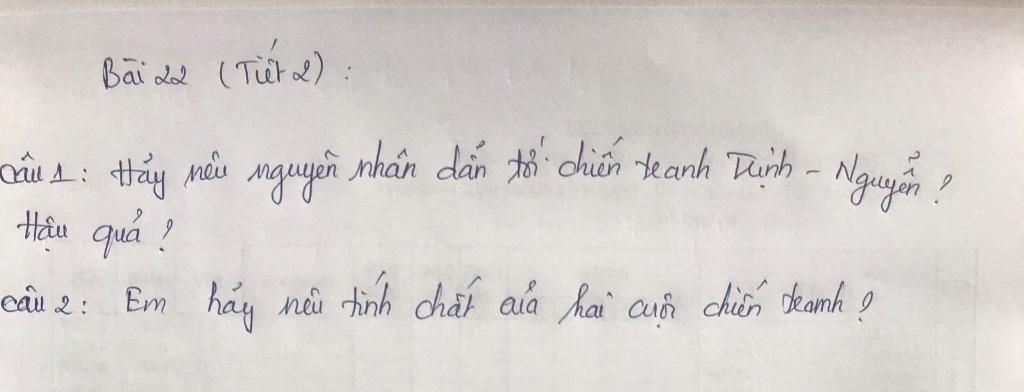 Bài 22 (Tiết 2) :
Câu 1 : Hãy nêu nguyên nhân dẫn tới chiến tranh Trịnh - Nguyễn ?
Hậu quả ?
Câu 2 : Em hãy nêu tính chất của hai cuộc chiến tranh ?